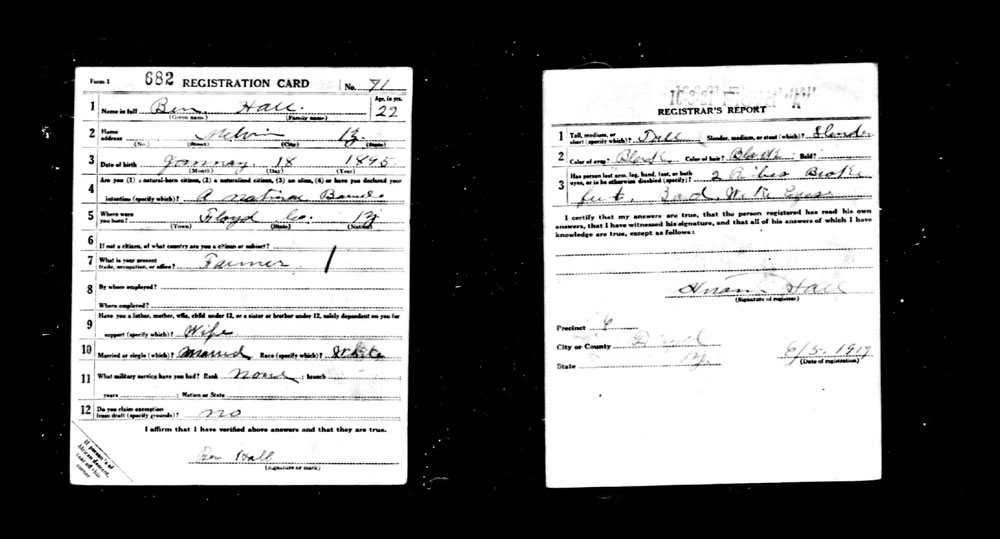 Form 1 682 REGISTRATION CARD No. 71
1 Name in full Ben Hall. Age, in yrs. 22
(Given name) (Family name)
2 Home address Melvin Ky.
(No.) (Street) (City) (State)
3 Date of birth January 18 1895
(Month) (Day) (Year)
4 Are you (1) a natural-born citizen, (2) a naturalized citizen, (3) an alien, (4) or have you declared your
intention (specify which)? A natural
5 Where were you born? Floyd Co. Ky
(Town) (State) (Nation)
6 If not a citizen, of what country are you a citizen or subject?
7 What is your present trade, occupation, or office? Farmer
8 By whom employed?
Where employed?
9 Have you a father, mother, wife, child under 12, or a sister or brother under 12, solely dependent on you for
support (specify which)? Wife
10 Married or single (which)? Married Race (specify which)? White
11 What military service have you had? Rank none ; branch
years ; Nation or State
12 Do you claim exemption from draft (specify grounds)? no
I affirm that I have verified above answers and that they are true.
Ben Hall
(Signature or mark)
If person is of
African descent,
tear off this
corner
REGISTRAR'S REPORT
1 Tall, medium, or short (specify which)? Tall Slender, medium, or stout (which)? Slender
2 Color of eyes? Color of hair? Black Bald?
3 Has person lost arm, leg, hand, foot, or both eyes, or is he otherwise disabled (specify)? 2 Broke
Bad Eyes
I certify that my answers are true, that the person registered has read his own
answers, that I have witnessed his signature, and that all of his answers of which I have
knowledge are true, except as follows:
Hiram Hall
(Signature of registrar)
Precinct 6
City or County
State Ky. 6/5-1917
(Date of registration)